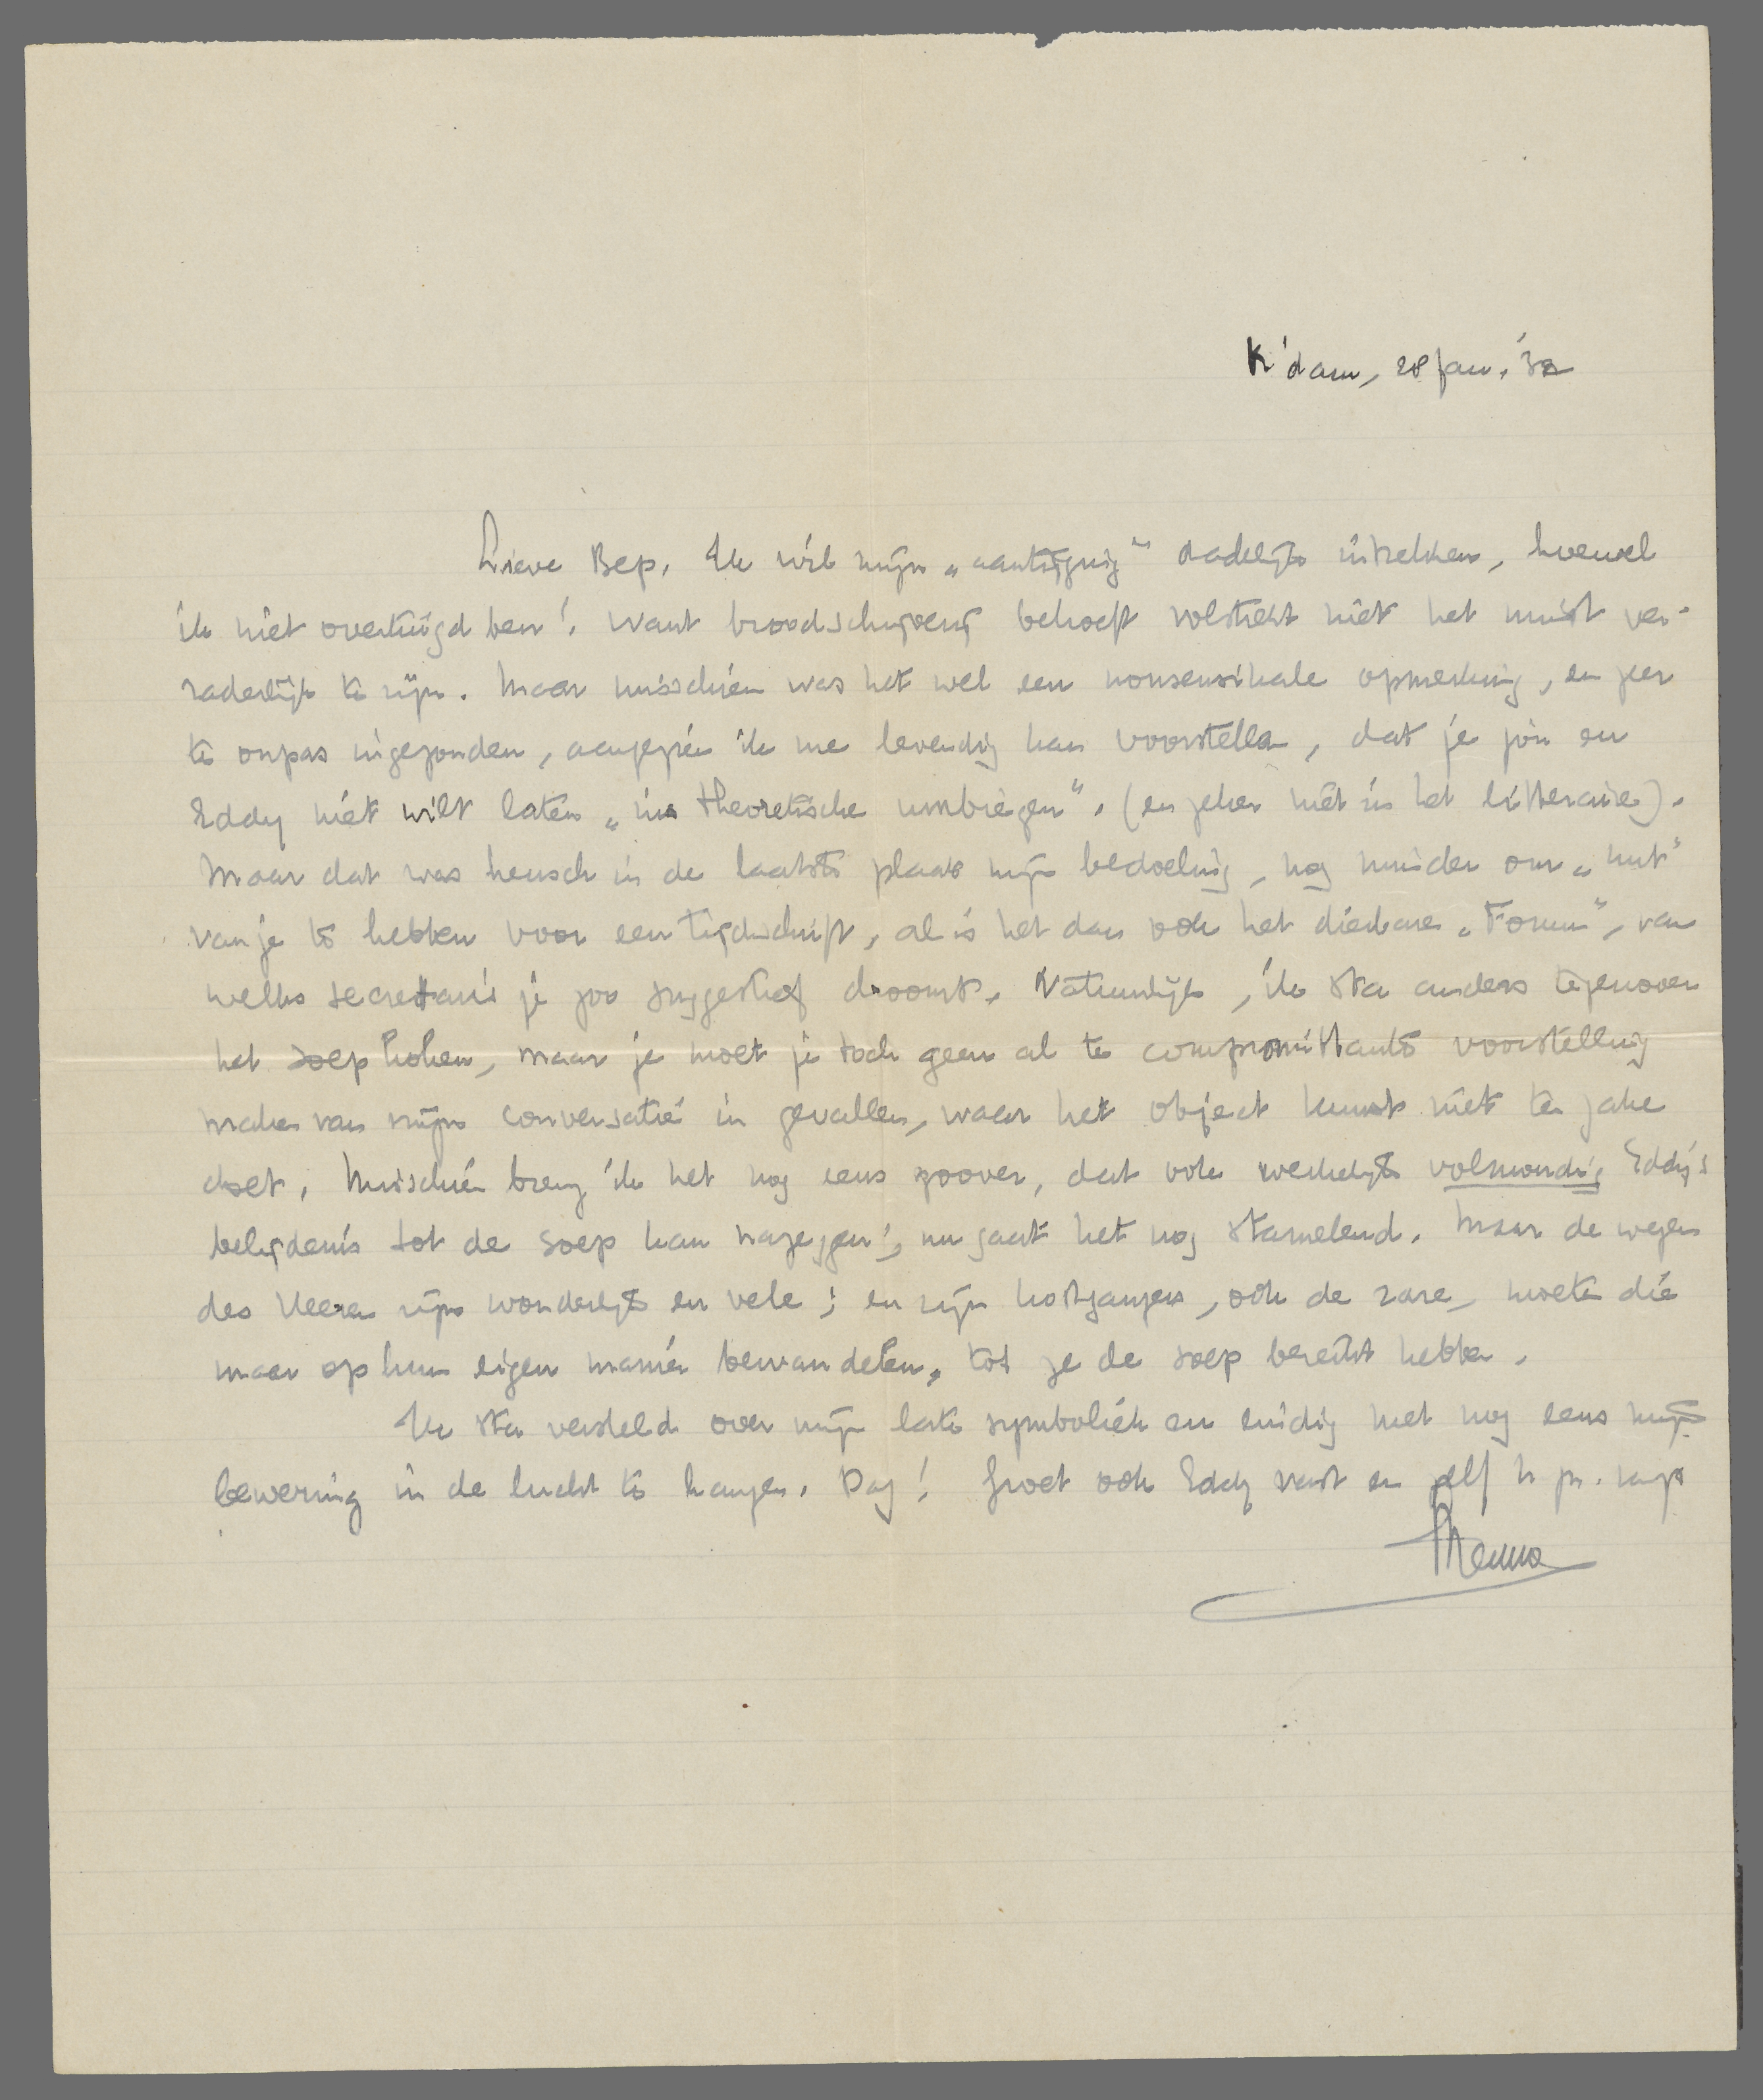 R'dam, 28 Jan. '32
Lieve Bep. Ik wil mijn „aantijging” dadelijk intrekken, hoewel
ik niet overtuigd ben! Want broodschrijverij behoeft volstrekt niet het minst ver-
raderlijk te zijn. Maar misschien was het wel een nonsensikale opmerking, en zeer
te onpas ingezonden, aangezien ik me levendig kan voorstellen, dat je jou en
Eddy niet wilt laten „ins theoretische umbiegen”. (en zeker niet in het litteraire).
Maar dat was heusch in de laatste plaats mijn bedoeling, nog minder om „nut”
van je te hebben voor een tijdschrift, al is het dan ook het dierbare „Forum”, van
welks secretaris je zoo suggestief droomt. Natuurlijk, ik sta anders tegenover
het soep koken, maar je moet je toch geen al te compromittante voorstelling
maken van mijn conversatie in gevallen, waar het object kunst niet ter zake
doet. Misschien breng ik het nog eens zoover, dat ook werkelijk volmondig Eddy's
belijdenis tot de soep kan nazeggen; nu gaat het nog stamelend. Maar de wegen
des Heeren zijn wonderlijk en vele; en zijn kostgangers, ook de rare, moeten die
maar op hun eigen manier bewandelen, tot ze de soep bereikt hebben.
Ik sta versteld over mijn late symboliek en eindig met nog eens mijn
bewering in de lucht te hangen. Dag! Groet ook Eddy vast en zelf h gr. van je
Menno